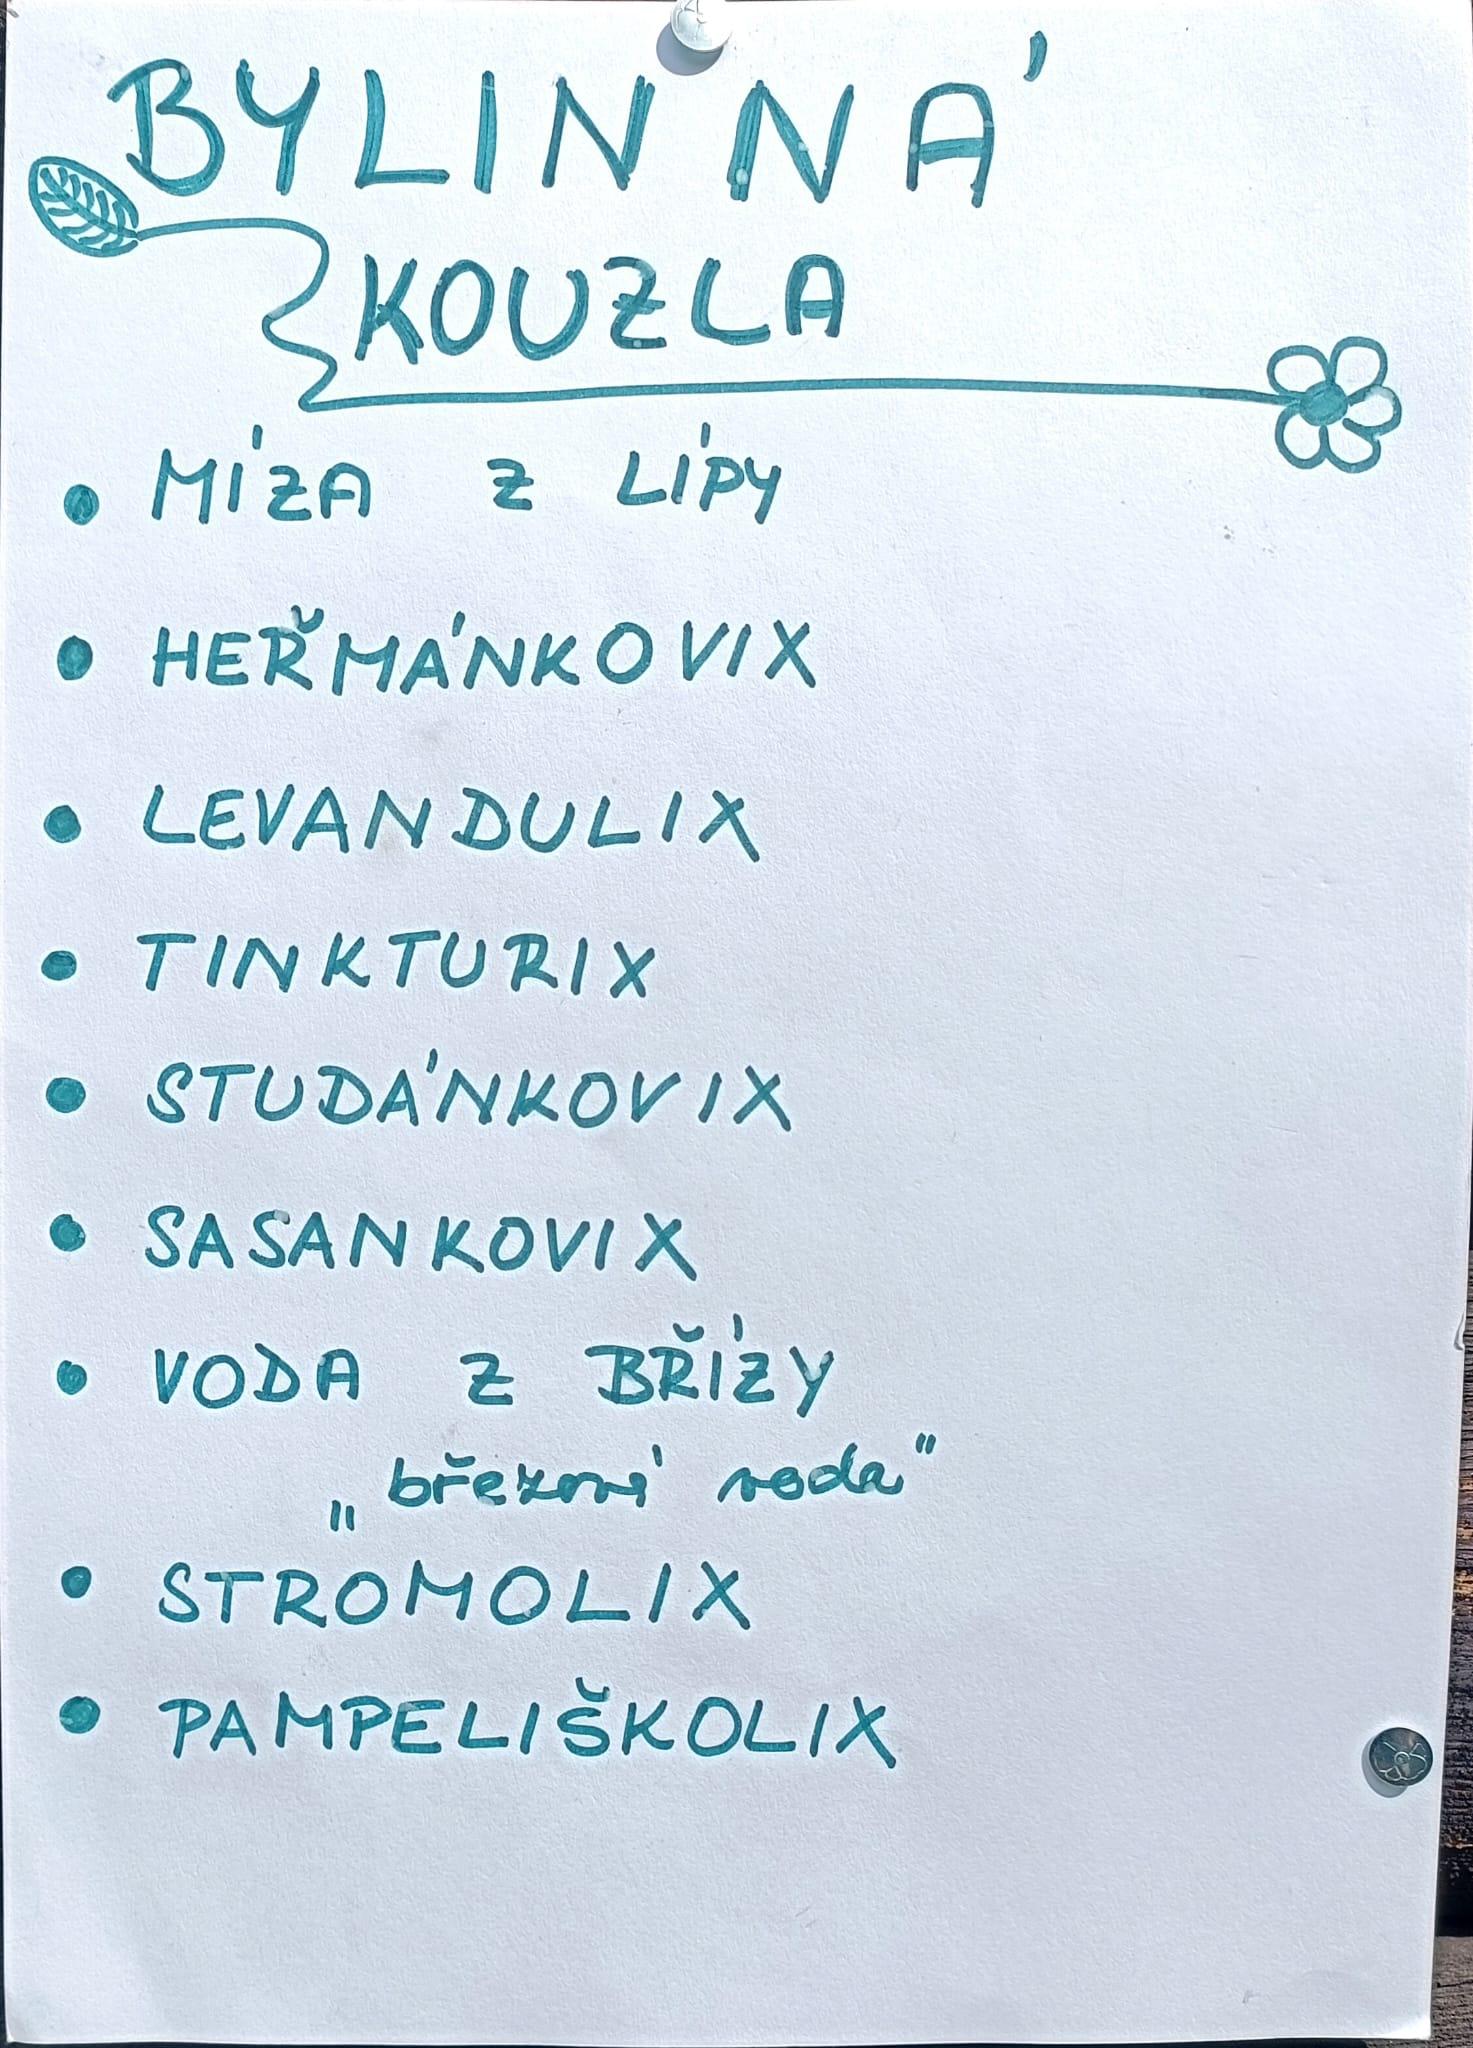 BYLINNÁ
KOUZLA
• MÍZA Z LÍPY
• HEŘMÁNKOVIX
• LEVANDULIX
• TINKTURIX
• STUDÁNKOVIX
• SASANKOVIX
• VODA Z BŘÍZY
„březová voda"
• STROMOLIX
• PAMPELIŠKOLIX